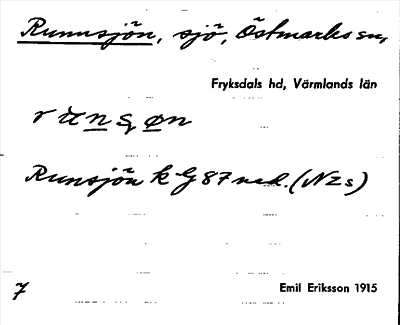 Runnsjön, sjö, Östmarks sn,
Fryksdals hd, Värmlands län
Runsjön k G 87 ned. (N Z s)
7
Emil Eriksson 1915